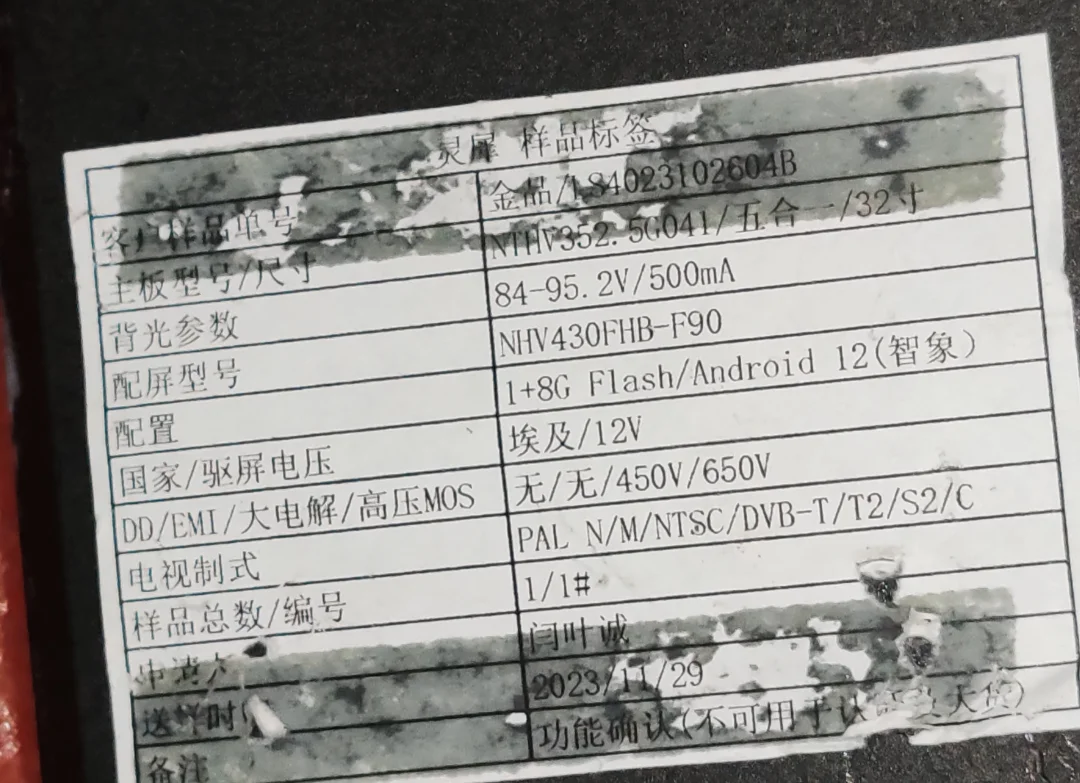 灵犀 样品标签
客户样品单号 金品/LS4023102604B
主板型号/尺寸 NTHV352.5G041/五合一/32寸
背光参数 84-95.2V/500mA
配屏型号 NHV430FHB-F90
配置 1+8G Flash/Android 12(智象)
国家/驱屏电压 埃及/12V
DD/EMI/大电解/高压MOS 无/无/450V/650V
电视制式 PAL N/M/NTSC/DVB-T/T2/S2/C
样品总数/编号 1/1#
申请 闫叶诚
送样时 2023/11/29
备注 功能确认(不可用于认 大货)